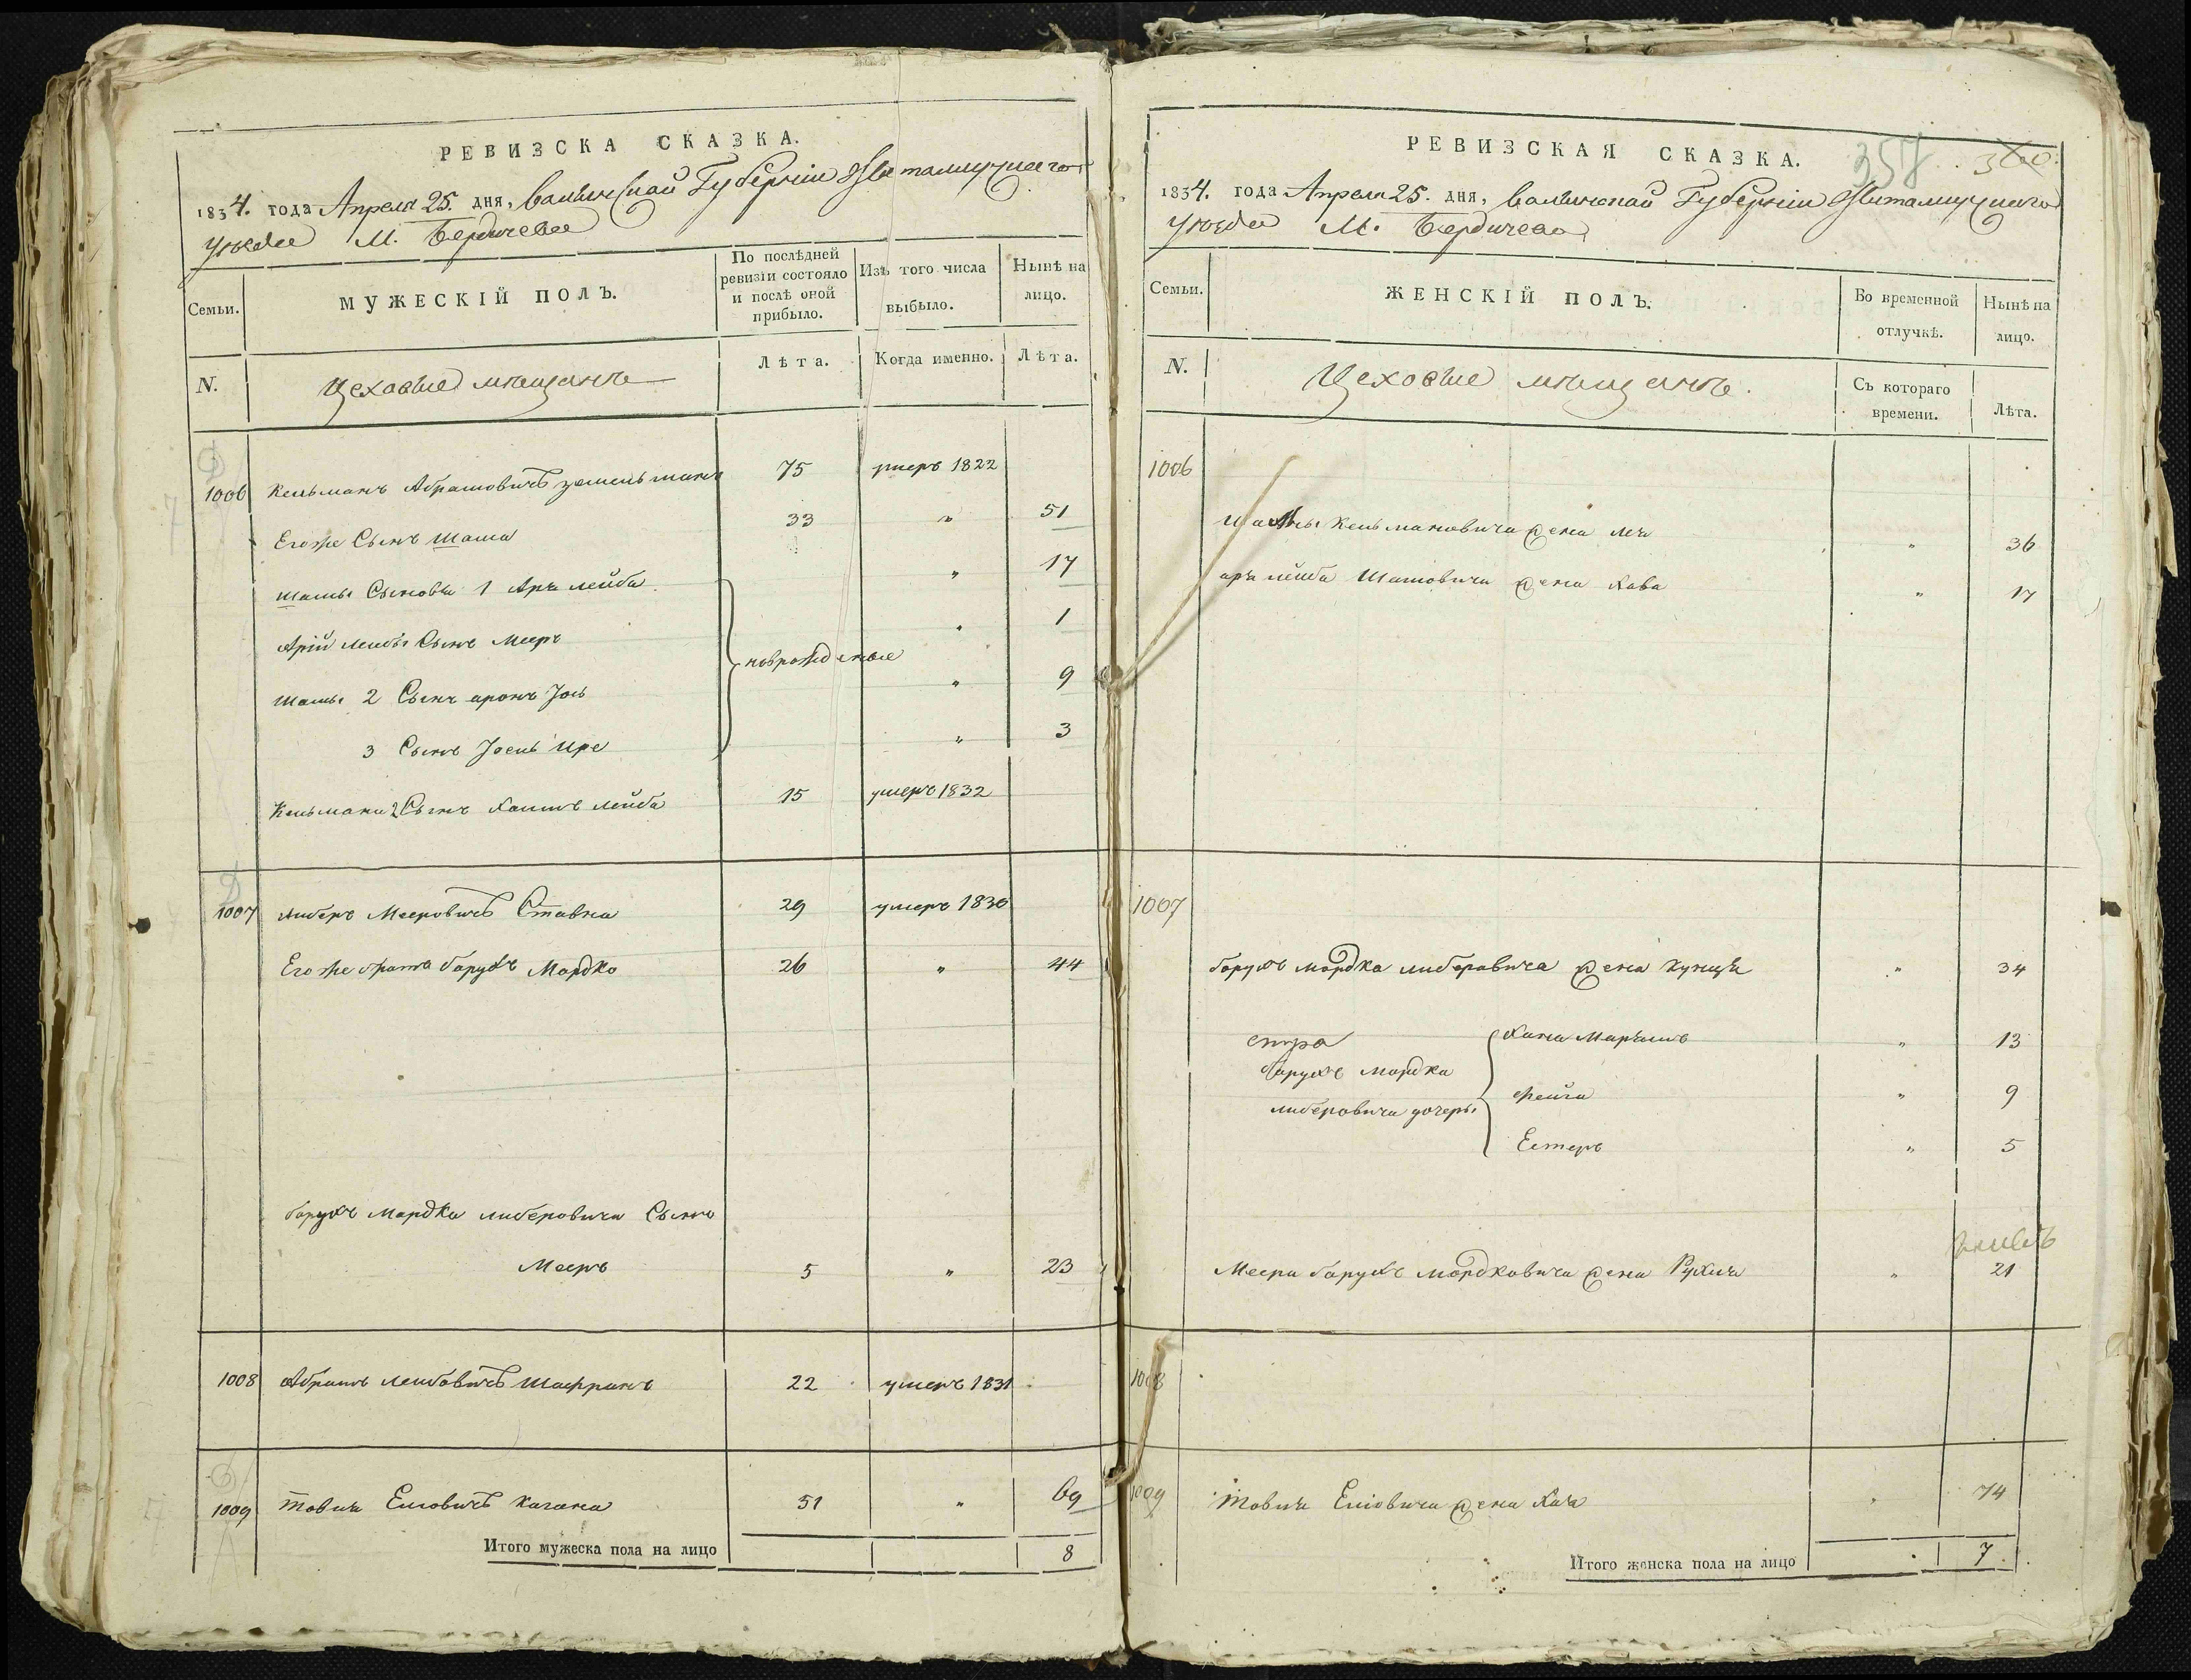 РЕВИЗСКА СКАЗКА.
1834. года Апреля 25. дня, Волынской Губернии Житомирского
Уезда М. Бердичева
Семьи.
МУЖЕСКІЙ ПОЛЪ.
По послѣдней ревизіи состояло и послѣ оной прибыло.
Изъ того числа выбыло.
Нынѣ на лицо.
N.
Цеховые мещане
Лѣта.
Когда именно.
Лѣта.
1006 Кельманъ Абрамовичъ 75 умеръ 1822
Егоже Сынъ Шама 33 " 51
Шамы Сыновья 1 Аря лейба " 17
Арій лейбы Сынъ Меер " 1
новрожденые
Шамы 2 Сынъ аронъ Іось " 9
3 Сынъ " 3
Кельмана 2 Сынъ Хаимъ лейба 15 умеръ 1832
1007 либеръ Мееровичъ Ставна 29 умеръ 1830
Егоже братъ барухъ Мордко 26 " 44
барухъ Мардка либеровича Сынъ
Мееръ 5 " 23
1008 Абрамъ лейбовичъ Шафранъ 22 умеръ 1831
1009 товия Еиовичъ кагана 51 " 69
Итого мужеска пола на лицо 8
РЕВИЗСКАЯ СКАЗКА.
358 360
1834. года Апреля 25. дня, Волынской Губернии Житомирского
Уезда М. Бердичева
Семьи.
ЖЕНСКІЙ ПОЛЪ.
Во временной отлучкѣ.
Нынѣ на лицо.
N.
Цеховые мещане.
Съ котораго времени.
Лѣта.
1006
Шамы Кельмановича жена лея " 36
аря лейба Шамовича жена Хава " 17
1007
барухъ мордка либеровича жена " 34
Хана Маріамъ " 13
барухъ мордка
фейга " 9
либеровича дочеры
Естеръ " 5
Меера барухъ мордковича жена Рухля " 21
1008
1009 товия Еиовича жена Хая " 74
Итого женска пола на лицо 7.